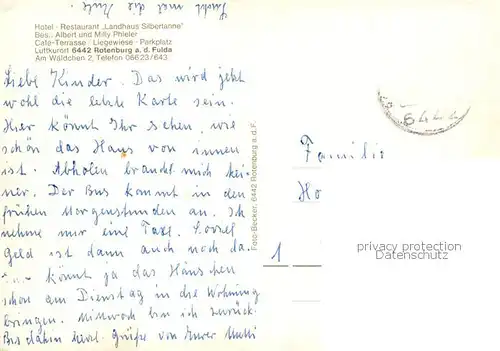 sucht mal die
Hotel - Restaurant „Landhaus Silbertanne"
Bes.: Albert und Milly Phieler
Cafe-Terrasse · Liegewiese · Parkplatz
Luftkurort 6442 Rotenburg a. d. Fulda
Am Wäldchen 2, Telefon 06623/643
Liebe Kinder. Das wird jetzt
wohl die letzte Karte sein.
Hier könnt Ihr sehen, wie
schön das Haus von innen
ist. Abholen braucht mich kei-
ner. Der Bus kommt in den
frühen Morgenstunden an. Ich
nehme mir eine Taxe. Soviel
Geld ist dann auch noch da.
könnt ja das Häuschen
schon am Dienstag in die Wohnung
bringen. Mittwoch bin ich zurück.
Bis dahin herzl. Grüße von Eurer Mutti
Foto-Becker, 6442 Rotenburg a.d.F.
6442
Familie
Ho
1
privacy protection
Datenschutz